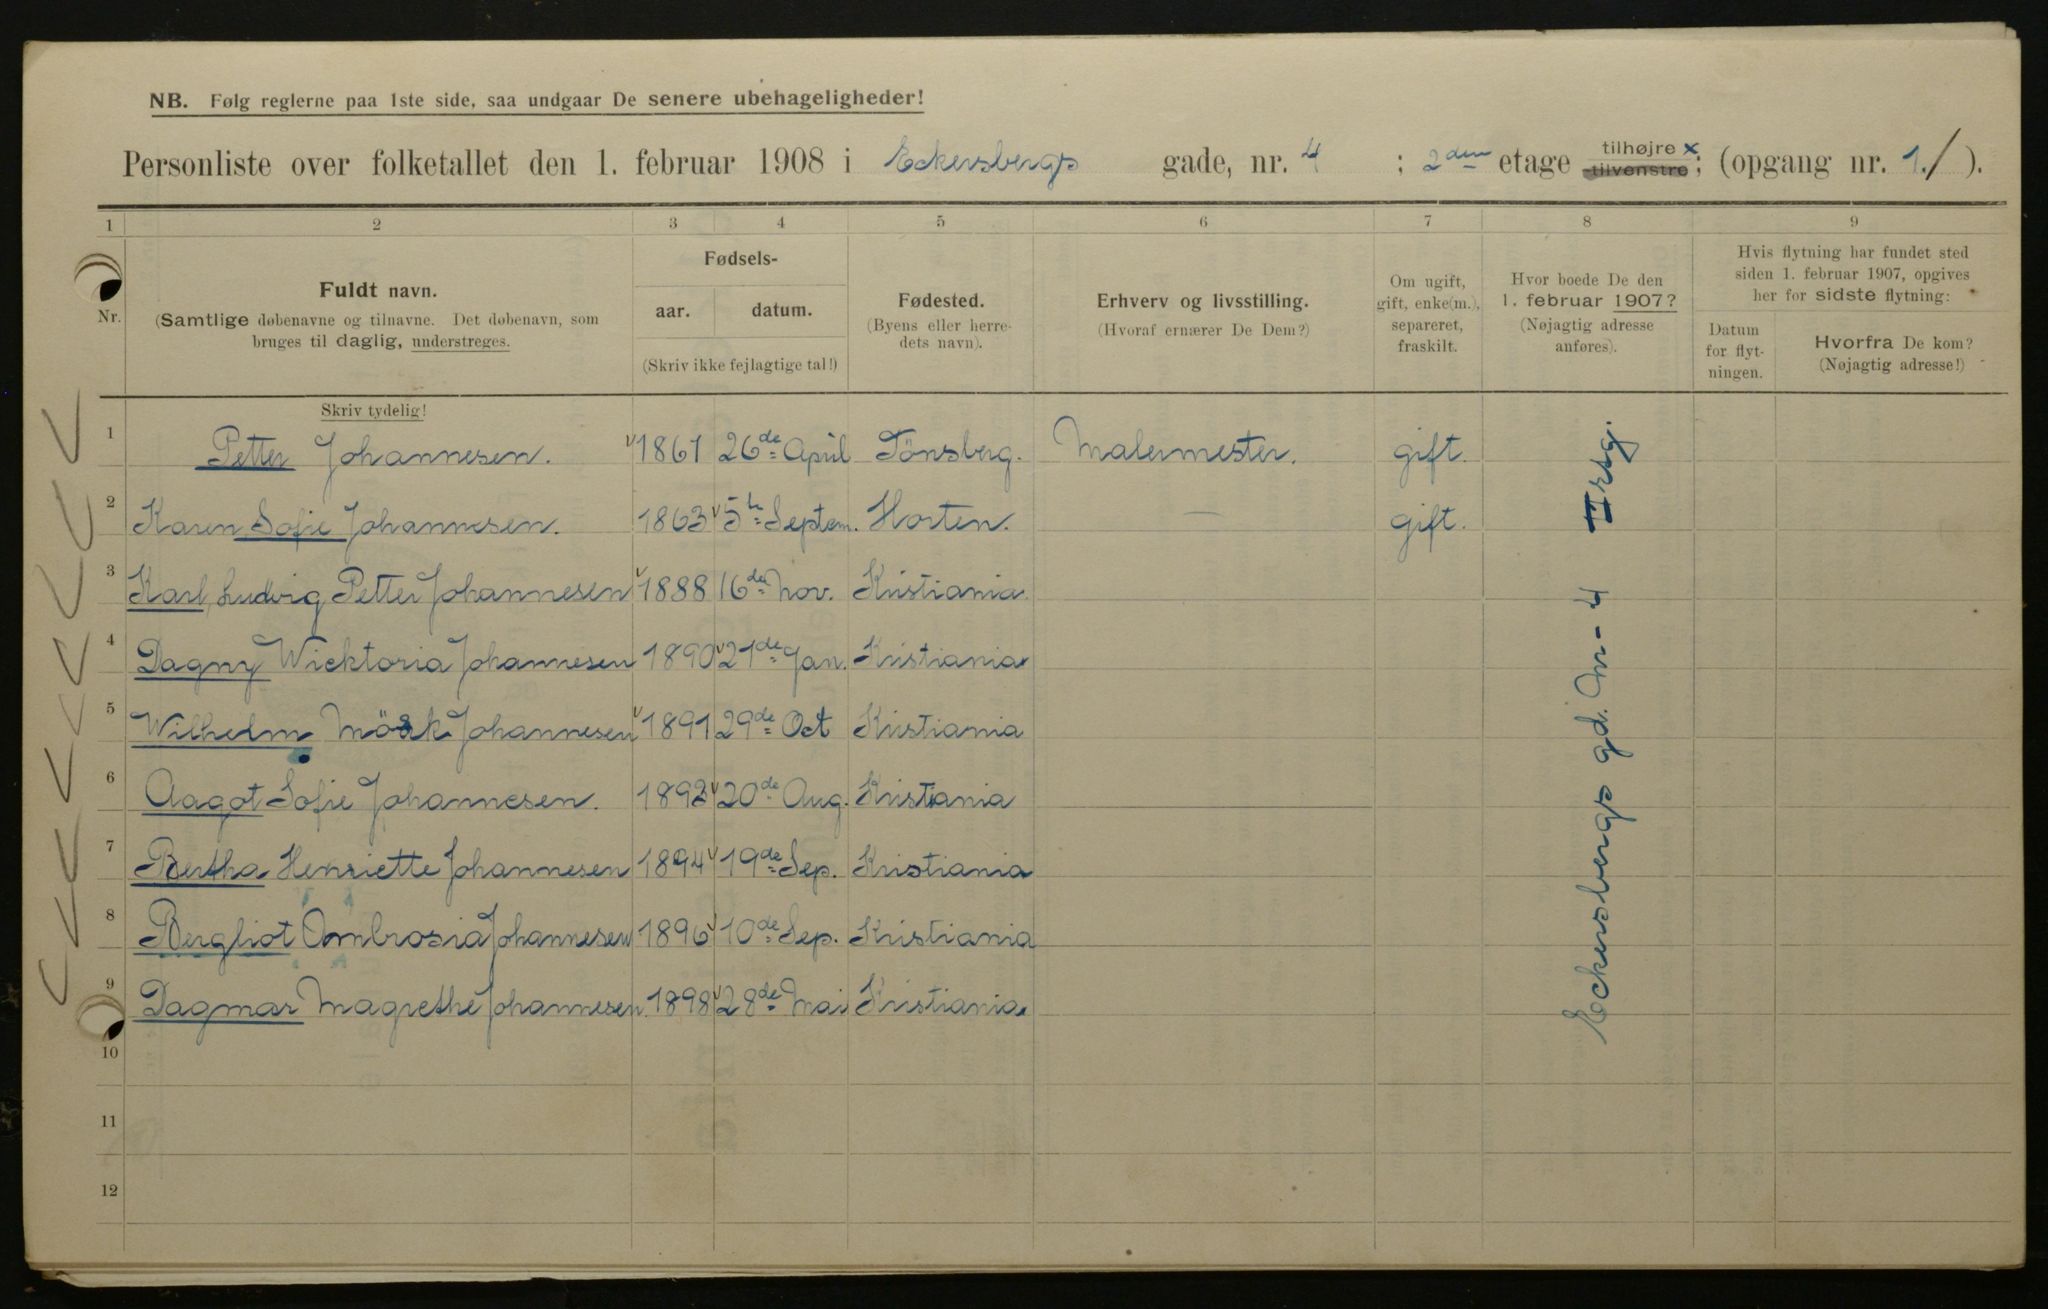 NB. Følg reglerne paa 1ste side, saa undgaar De senere ubehageligheder!
Personliste over folketallet den 1. februar 1908 i Eckersbergs gade, nr. 4 ; 2den etage tilhøjre x tilvenstre; (opgang nr. 1./ ).
1 2 3 4 5 6 7 8 9
Nr.
Fuldt navn.
(Samtlige døbenavne og tilnavne. Det døbenavn, som
bruges til daglig, understreges.
Fødsels-
aar. datum.
(Skriv ikke fejlagtige tal!)
Fødested.
(Byens eller herre-
dets navn).
Erhverv og livsstilling.
(Hvoraf ernærer De Dem?)
Om ugift,
gift, enke(m.),
separeret,
fraskilt.
Hvor boede De den
1. februar 1907?
(Nøjagtig adresse
anføres).
Hvis flytning har fundet sted
siden 1. februar 1907, opgives
her for sidste flytning:
Datum
for flyt-
ningen.
Hvorfra De kom?
(Nøjagtig adresse!)
Skriv tydelig!
1 Petter Johannesen. 1861 26de April Tönsberg. Malermester. gift.
2 Karen Sofie Johannesen. 1863 5te Septem. Horten. — gift.
3 Karl Ludvig Petter Johannesen 1888 16de Nov. Kristiania.
4 Dagny Wicktoria Johannesen 1890 21de Jan. Kristiania
5 Wilhelm Mörk Johannesen 1891 29de Oct Kristiania
6 Aagot Sofie Johannesen. 1893 20de Aug. Kristiania
7 Bertha Henriette Johannesen 1894 19de Sep. Kristiania
8 Bergliot Ambrosia Johannesen 1896 10de Sep. Kristiania
9 Dagmar Magrethe Johannesen. 1898 28de Mai Kristiania
10
11
12
Eckersbergs gd. No - 4 II etg.